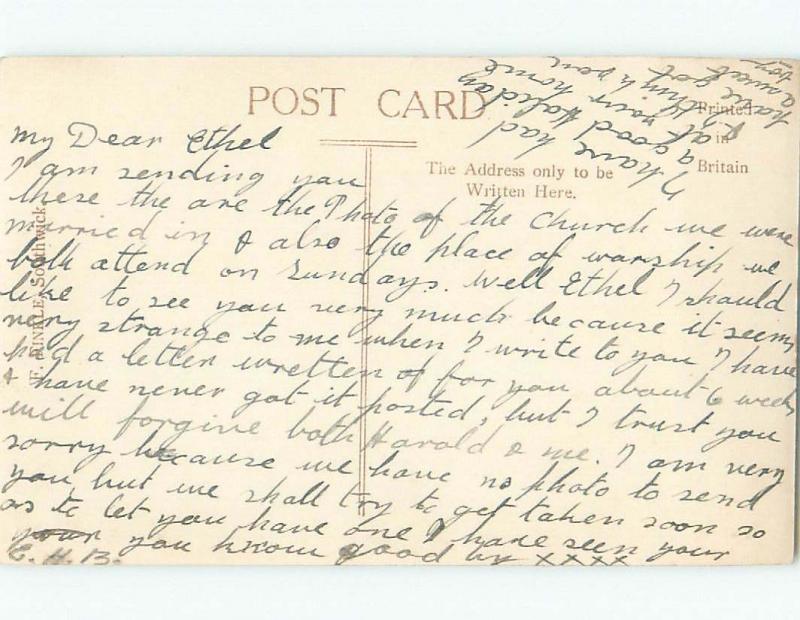 POST CARD
Printed
in
Britain
The Address only to be
Written Here.
W. PINKLE, Southwick
My Dear Ethel
I am sending you
these the are the Photo of the Church we were
married in & also the place of warship we
both attend on Sundays. Well Ethel I should
like to see you very much because it seems
very strange to me when I write to you I have
had a letter wretten of for you about 6 weeks
& have never got it posted, but I trust you
will forgive both Harold & me. I am very
sorry because we have no photo to send
you but we shall try to get taken soon so
as to let you have one I have seen your
your you know good by xxxx
E. H. B.
I have had
a good Holiday
at your home
& I think you
have got
a sweet